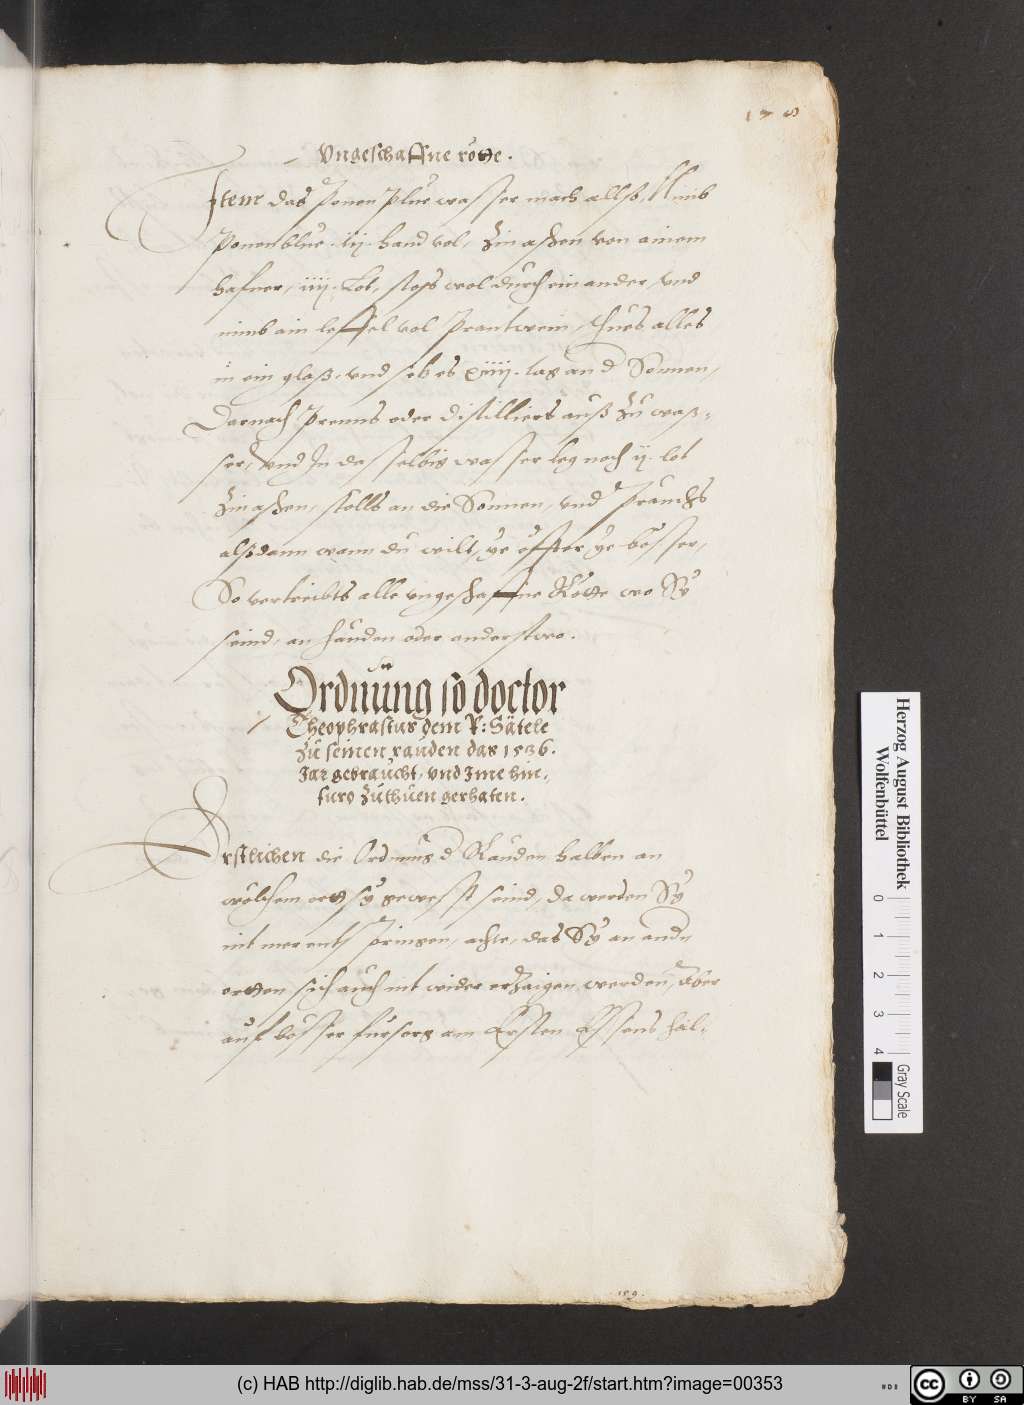 178
Vngeschaffne rötte.
Item das Ponen Plüe wasser mach allso, Nimb
Ponenblüe .iij. hand vol, Zin aschen von ainem
hafner, iiij. Lot, stoss wol durch ein ander, vnd
nimb ain leffel vol Prantwein, thues alles
in ein glass, vnd setz es xiiij. tag an d Sonnen,
Darnach Prenns oder distilliers auß zu waß-
ser, vnd In dasselbig wasser leg noch ij. lot
Zin aschen, stells an die Sonnen, vnd Prauchs
alßdann wann du wilt, ye öffter ye besser,
So vertreibts alle vngeschaffne Rötte wo Sy
seind, an händen oder anderstwo.
Ordnung so doctor
Theophrastus dem P: Sätele
zu seinen rauden das 1536.
Jar gebraucht, vnd Ime hin-
furo zuthuen gerhaten.
Erstlichen die Ordnung d Rauden halben an
wölchem ortt sy gewesst seind, da werden Sy
nit mer entspringen, achte, das Sy an andn
ortten sich auch nit wider erzaigen werden, Aber
auf besser fursorg am Ersten Essens hal-
159.
Herzog August Bibliothek
Wolfenbüttel
0 1 2 3 4
Gray Scale
(c) HAB http://diglib.hab.de/mss/31-3-aug-2f/start.htm?image=00353
cc BY SA